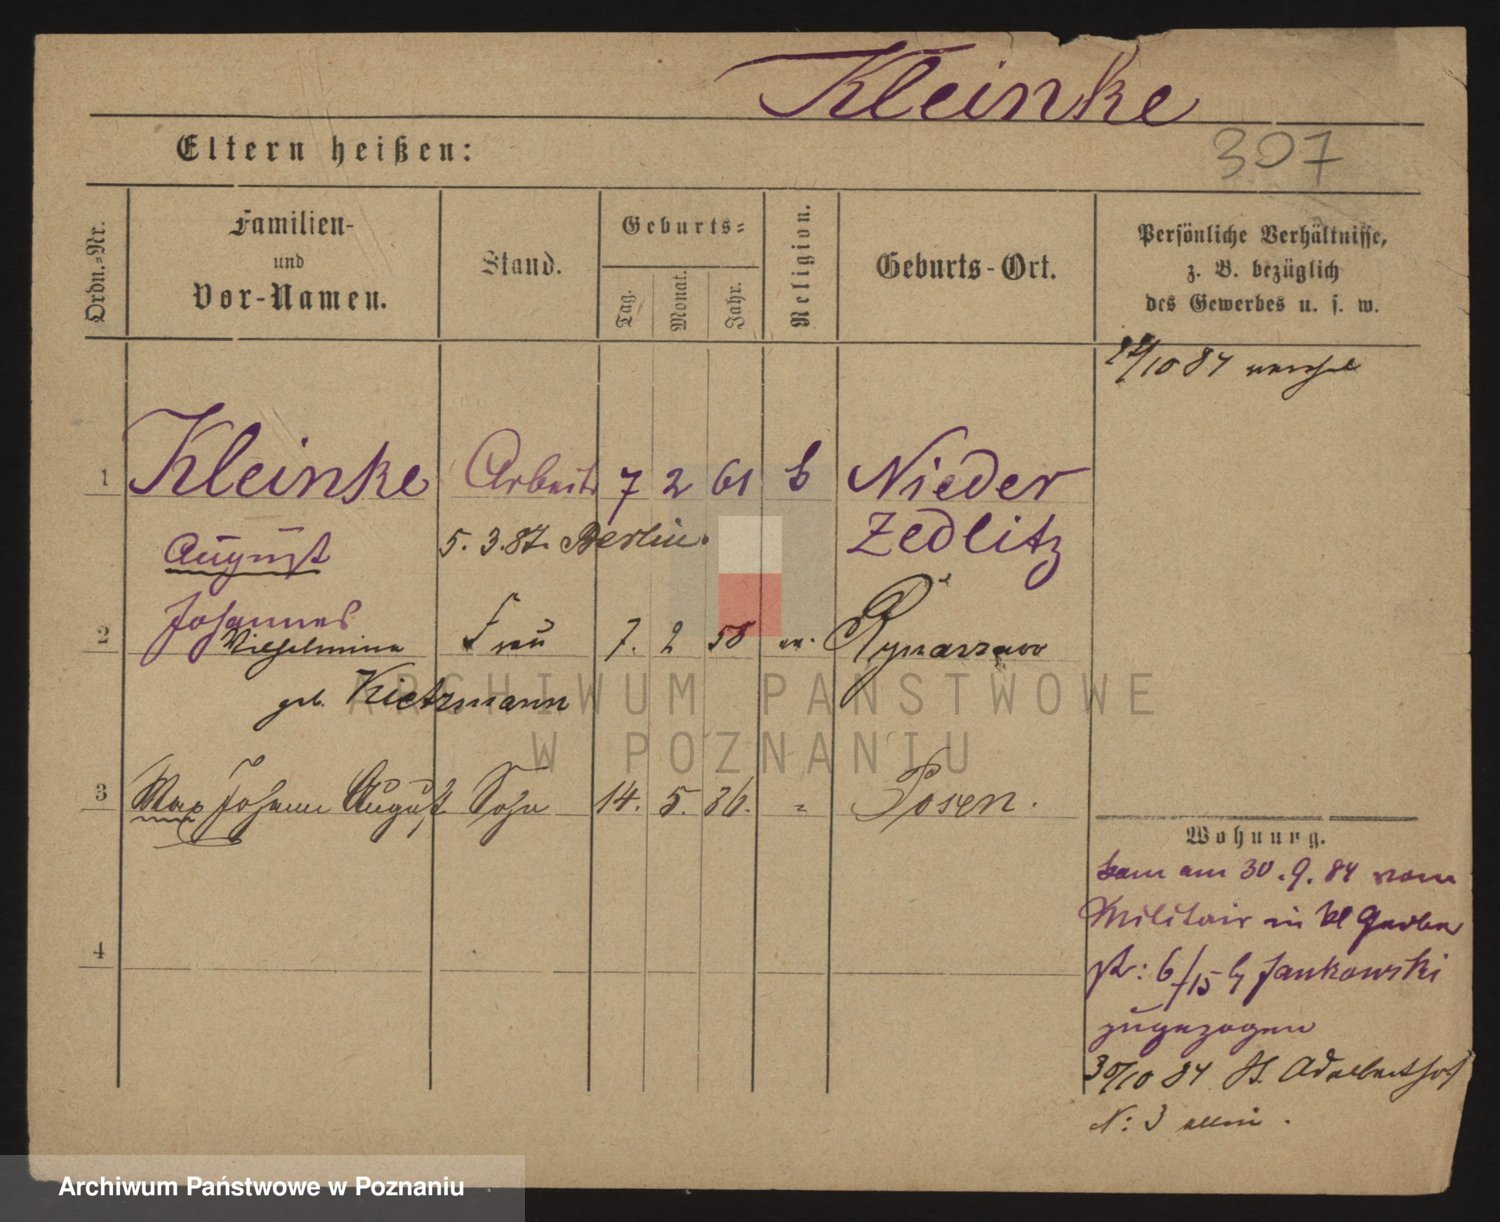 Kleinke
307
Eltern heißen:
Ordn.=Nr.
Familien-
und
Vor-Namen.
Stand.
Geburts=
Tag.
Monat.
Jahr.
Religion.
Geburts-Ort.
Persönliche Verhältnisse,
z. B. bezüglich
des Gewerbes u. s. w.
/10 84
1 Kleinke Arbeiter 7 2 61 Nieder
August 5. 3. 87. Berlin. Zedlitz
Johannes
2 Wilhelmine Frau 7. 2 58 ev.
geb. Kietzmann
ARCHIWUM PAŃSTWOWE
W POZNANIU
3 Max Johann August Sohn 14. 5. 86. " Posen.
Wohnung.
kam am 30. 9. 84 vom
Militair in kl Gerber
str: 6/15 b Jankowski
zugezogen
4
30/10 84 St. Adalbertstr
N: 3 allein.
Archiwum Państwowe w Poznaniu